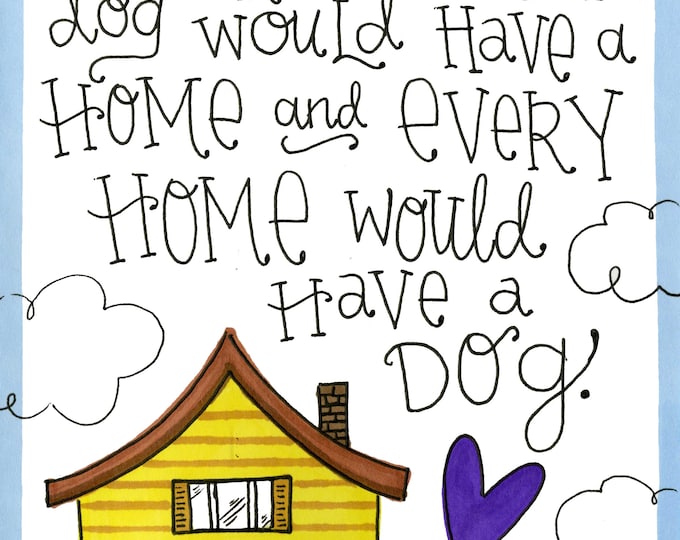 dog would Have a
HOME and EVERY
HOME would
Have a
Dog.